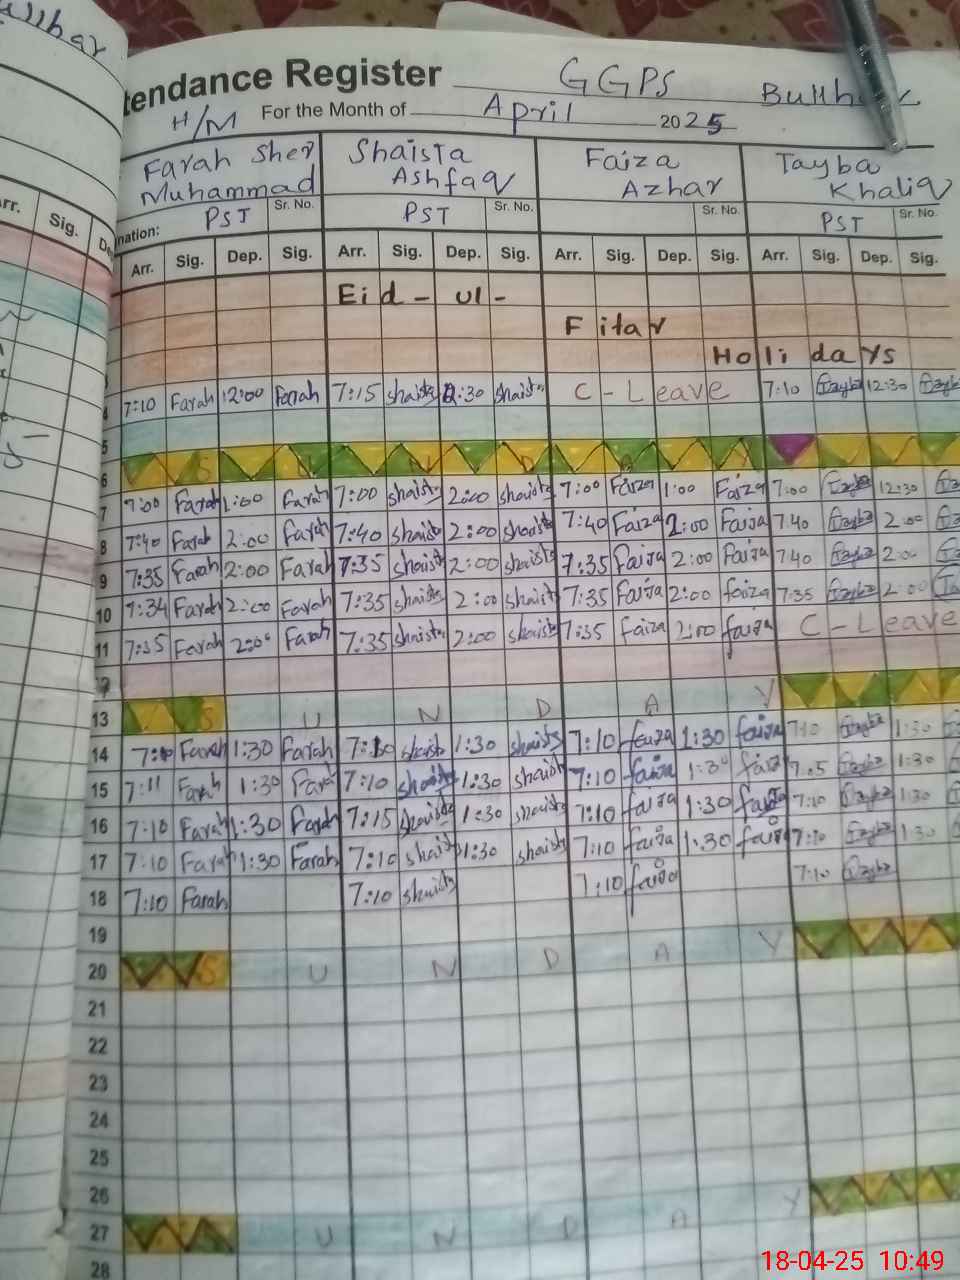 tendance Register GGPS
H/M For the Month of April 2025
Farah Sher Muhammad Shaista Ashfaq Faiza Azhar Tayba Khaliq
nation: PST Sr. No. PST Sr. No. Sr. No. PST Sr. No.
Arr. Sig. Dep. Sig. Arr. Sig. Dep. Sig. Arr. Sig. Dep. Sig. Arr. Sig. Dep. Sig.
Eid - ul -
Fitar
Holidays
4 7:10 Farah 12:00 Farah 7:15 Shaista :30 Shaista C - Leave 7:10 Tayba 12:30 Tayba
5
6 S U N D A Y
7 7:00 Farah 1:00 Farah 7:00 shaista 2:00 shaista 7:00 Faiza 1:00 Faiza 7:00 Tayba 12:30
8 7:40 Farah 2:00 Farah 7:40 shaista 2:00 shaista 7:40 Faiza 2:00 Faiza 7:40 Tayba 2:00
9 7:35 Farah 2:00 Farah 7:35 shaista 2:00 shaista 7:35 Faiza 2:00 Faiza 7:40 Tayba 2:00
10 7:34 Farah 2:00 Farah 7:35 shaista 2:00 shaista 7:35 Faiza 2:00 faiza 7:35 Tayba 2:00
11 7:35 Farah 2:00 Farah 7:35 shaista 2:00 shaista 7:35 faiza 2:00 faiza C - Leave
12
13 S U N D A Y
14 7:10 Farah 1:30 Farah 7:10 shaista 1:30 shaista 7:10 faiza 1:30 faiza 7:10 Tayba 1:30
15 7:11 Farah 1:30 Farah 7:10 shaista 1:30 shaista 7:10 faiza 1:30 faiza Tayba 1:30
16 7:10 Farah 1:30 Farah 7:15 shaista 1:30 shaista 7:10 faiza 1:30 faiza 7:10 Tayba 1:30
17 7:10 Farah 1:30 Farah 7:10 shaista 1:30 shaista 7:10 faiza 1:30 faiza 7:10 Tayba 1:30
18 7:10 Farah 7:10 shaista 7:10 faiza 7:10 Tayba
19
20 S U N D A Y
21
22
23
24
25
26
27 S U N D A Y
28
18-04-25 10:49